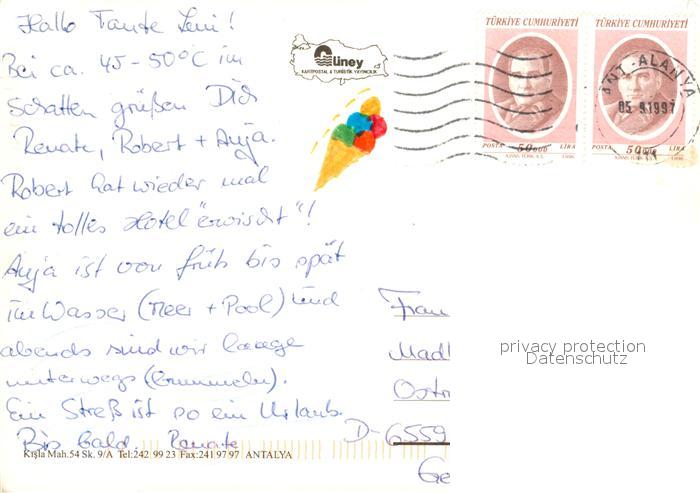 Hallo Tante Leni!
Bei ca. 45-50°C im
Schatten grüßen Dich
Renate, Robert + Anja.
Robert hat wieder mal
ein tolles Hotel "erwischt"!
Anja ist von früh bis spät
im Wasser (Meer + Pool) und
abends sind wir lange
unterwegs (bummeln).
Ein Streß ist so ein Urlaub.
Bis bald. Renate
Kışla Mah.54 Sk. 9/A Tel:242 99 23 Fax:241 97 97 ANTALYA
Güney
KARTPOSTAL & TURİSTİK YAYINCILIK
TÜRKİYE CUMHURİYETİ
POSTA 50000 LİRA
1996
TÜRKİYE CUMHURİYETİ
POSTA 50000 LİRA
1996
ALANYA
05 9.1997
Frau
Madl
Ostr
D-6559
Ge
privacy protection
Datenschutz